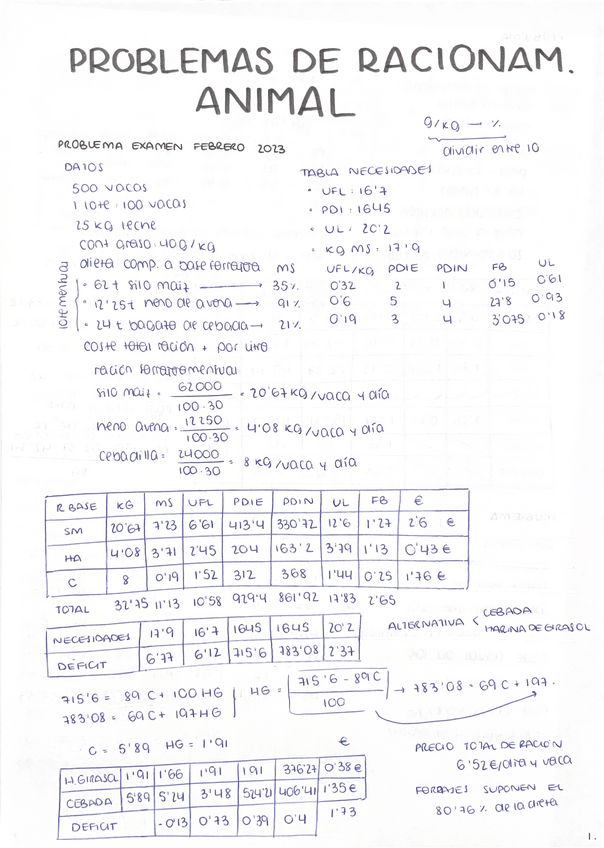 PROBLEMAS DE RACIONAM.
ANIMAL
g/kg → %
dividir entre 10
PROBLEMA EXAMEN FEBRERO 2023
DATOS
500 vacas
1 lote: 100 vacas
25 kg leche
cont graso: 40g/kg
TABLA NECESIDADES
• UFL: 16'7
• PDI: 1645
• UL: 20'2
• kg MS: 17'9
dieta comp. a base forrajera MS UFL/kg PDIE PDIN FB UL
lote mensual
• 62t silo maiz → 35% 0'32 2 1 0'15 0'61
• 12'25t heno de avena → 91% 0'6 5 4 27'8 0'93
• 24 t bagazo de cebada → 21% 0'19 3 4 3'075 0'18
coste total ración + por litro
ración forrajeramensual
silo maiz = 62000 / 100·30 = 20'67 kg/vaca y día
heno avena = 12250 / 100·30 = 4'08 kg/vaca y día
cebadilla = 24000 / 100·30 = 8 kg/vaca y día
R BASE KG MS UFL PDIE PDIN UL FB €
SM 20'67 7'23 6'61 413'4 330'72 12'6 1'27 2'6 €
HA 4'08 3'71 2'45 204 163'2 3'79 1'13 0'43€
C 8 0'19 1'52 312 368 1'44 0'25 1'76 €
TOTAL 32'75 11'13 10'58 929'4 861'92 17'83 2'65
NECESIDADES 17'9 16'7 1645 1645 20'2
DÉFICIT 6'77 6'12 715'6 783'08 2'37
ALTERNATIVA < CEBADA
HARINA DE GIRASOL
715'6 = 89 C + 100 HG
783'08 = 69 C + 197 HG
HG = 715'6 - 89C / 100 → 783'08 = 69 C + 197.
C = 5'89 HG = 1'91
€
H.GIRASOL 1'91 1'66 1'91 191 376'27 0'38€
CEBADA 5'89 5'24 3'48 524'21 406'41 1'35€
DEFICIT -0'13 0'73 0'39 0'4 1'73
PRECIO TOTAL DE RACIÓN
6'52€/día y vaca
FORRAJES SUPONEN EL
80'76% de la dieta
1.